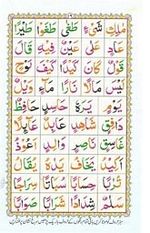 مَلِكِ شَيْءٍ طَغٰى طَغَوْا طَيْرًا
عَادٍ عَلٰى عَيْنٍ فِيْهِ قَالَ
قَوْلٌ كَانَ كَيْدًا كَيْفَ
لَيْسَ مَالًا نَارًا مَآءٍ وَيْلٌ
يَوْمٍ يَرَهٗ حَاسِدٍ حَافِظٌ
دَافِقٍ شَاهِدٍ عَابِدٌ
غَاسِقٍ نَاصِرٍ وَالِدٍ اَعُوْذُ
اَكِيْدُ يَخَافُ
تُرٰبًا حِسَابًا سُبَاتًا سِرَاجًا
سَلٰمٌ شِدَادًا شَرَابًا صَوَابًا